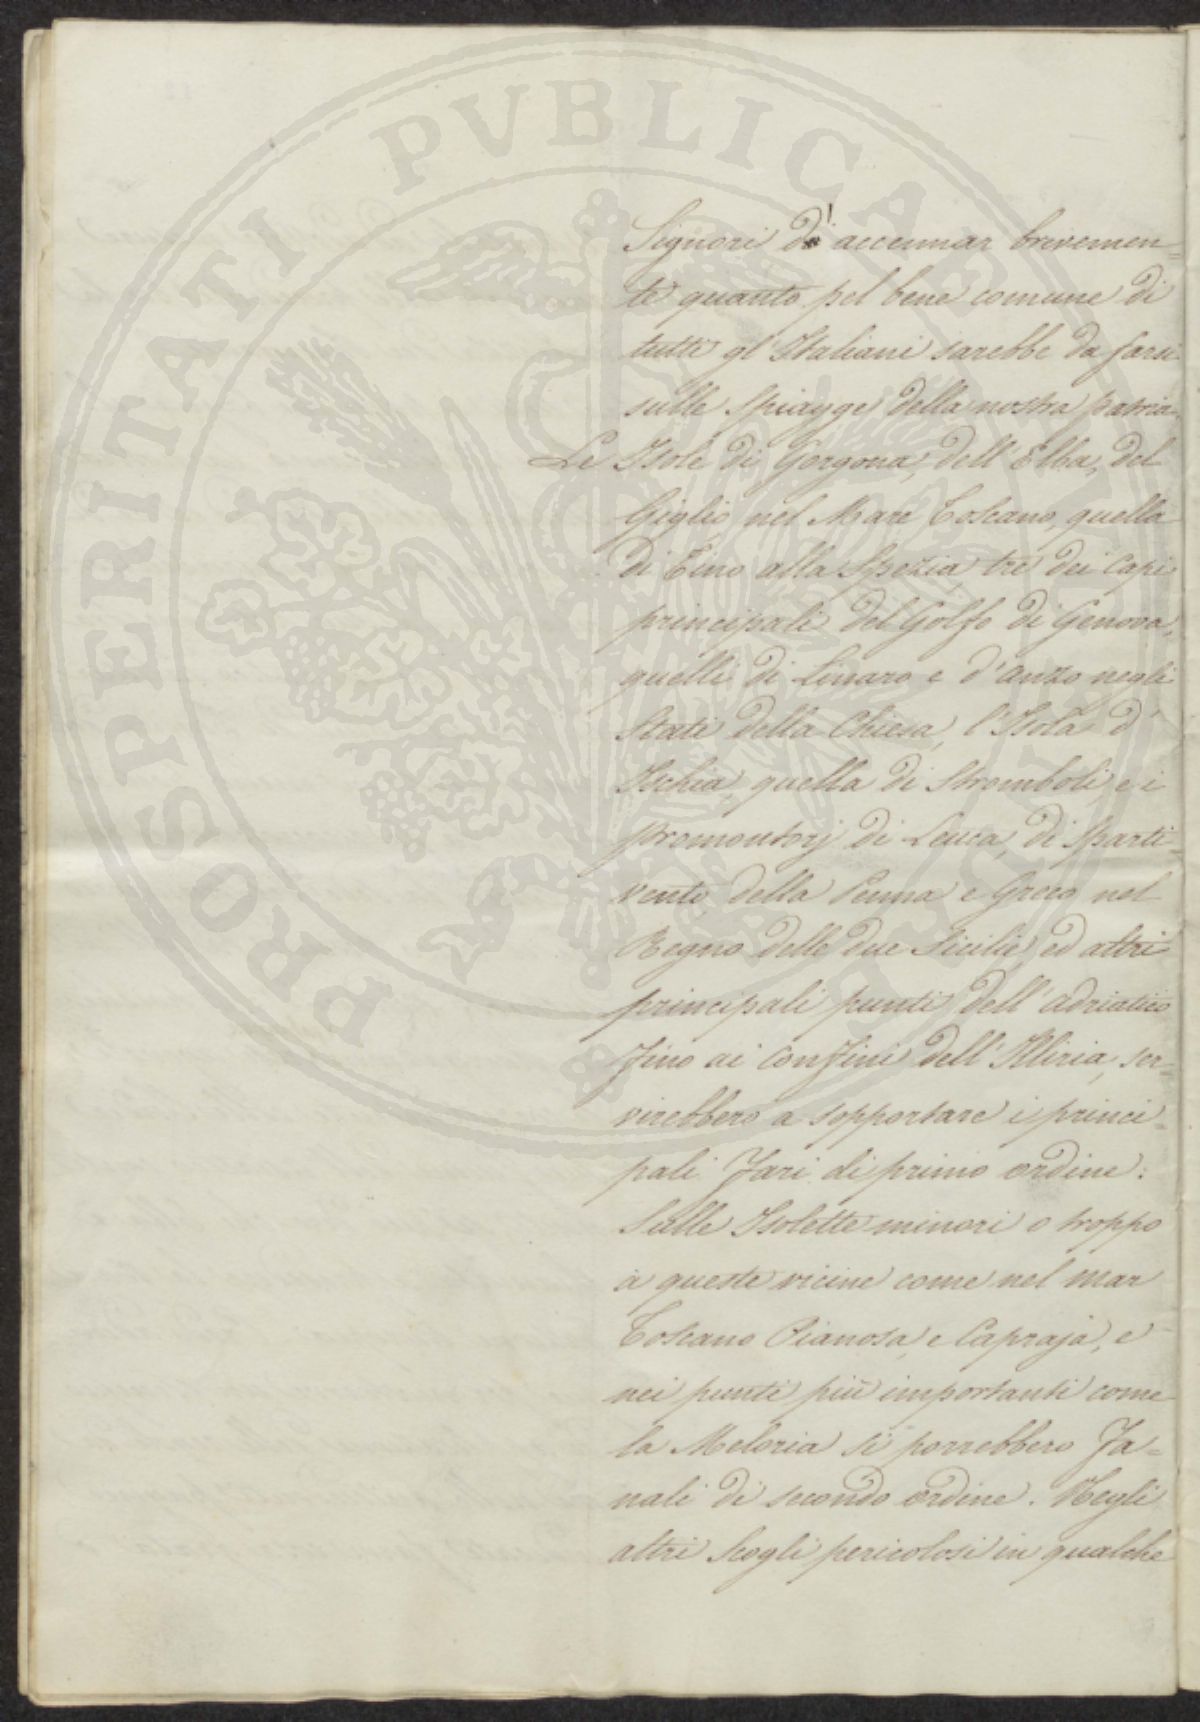 PROSPERITATI PVBLICAE
Signori d'accennar brevemen=
te quanto pel bene comune di
tutti gl'Italiani sarebbe da farsi
sulle spiagge della nostra patria.
Le Isole di Gorgona, dell'Elba, del
Giglio nel Mare Toscano, quella
di Tino alla Spezia tre dei Capi
principali del Golfo di Genova,
quelli di Linaro e d'Anzo negli
Stati della Chiesa, l'Isola d'
Ischia, quella di Stromboli, e i
promontorj di Leuca, di Sparti=
vento, della Penna e Greco nel
Regno delle due Sicilie, ed altri
principali punti dell'adriatico
fino ai confini dell'Illiria, ser=
virebbero a sopportare i princi=
pali Fari di primo ordine.
Sulle Isolette minori o troppo
a queste vicine come nel mar
Toscano Pianosa, e Capraja, e
nei punti più importanti come
la Meloria si porrebbero Fa=
nali di secondo ordine. Negli
altri Scogli pericolosi in qualche